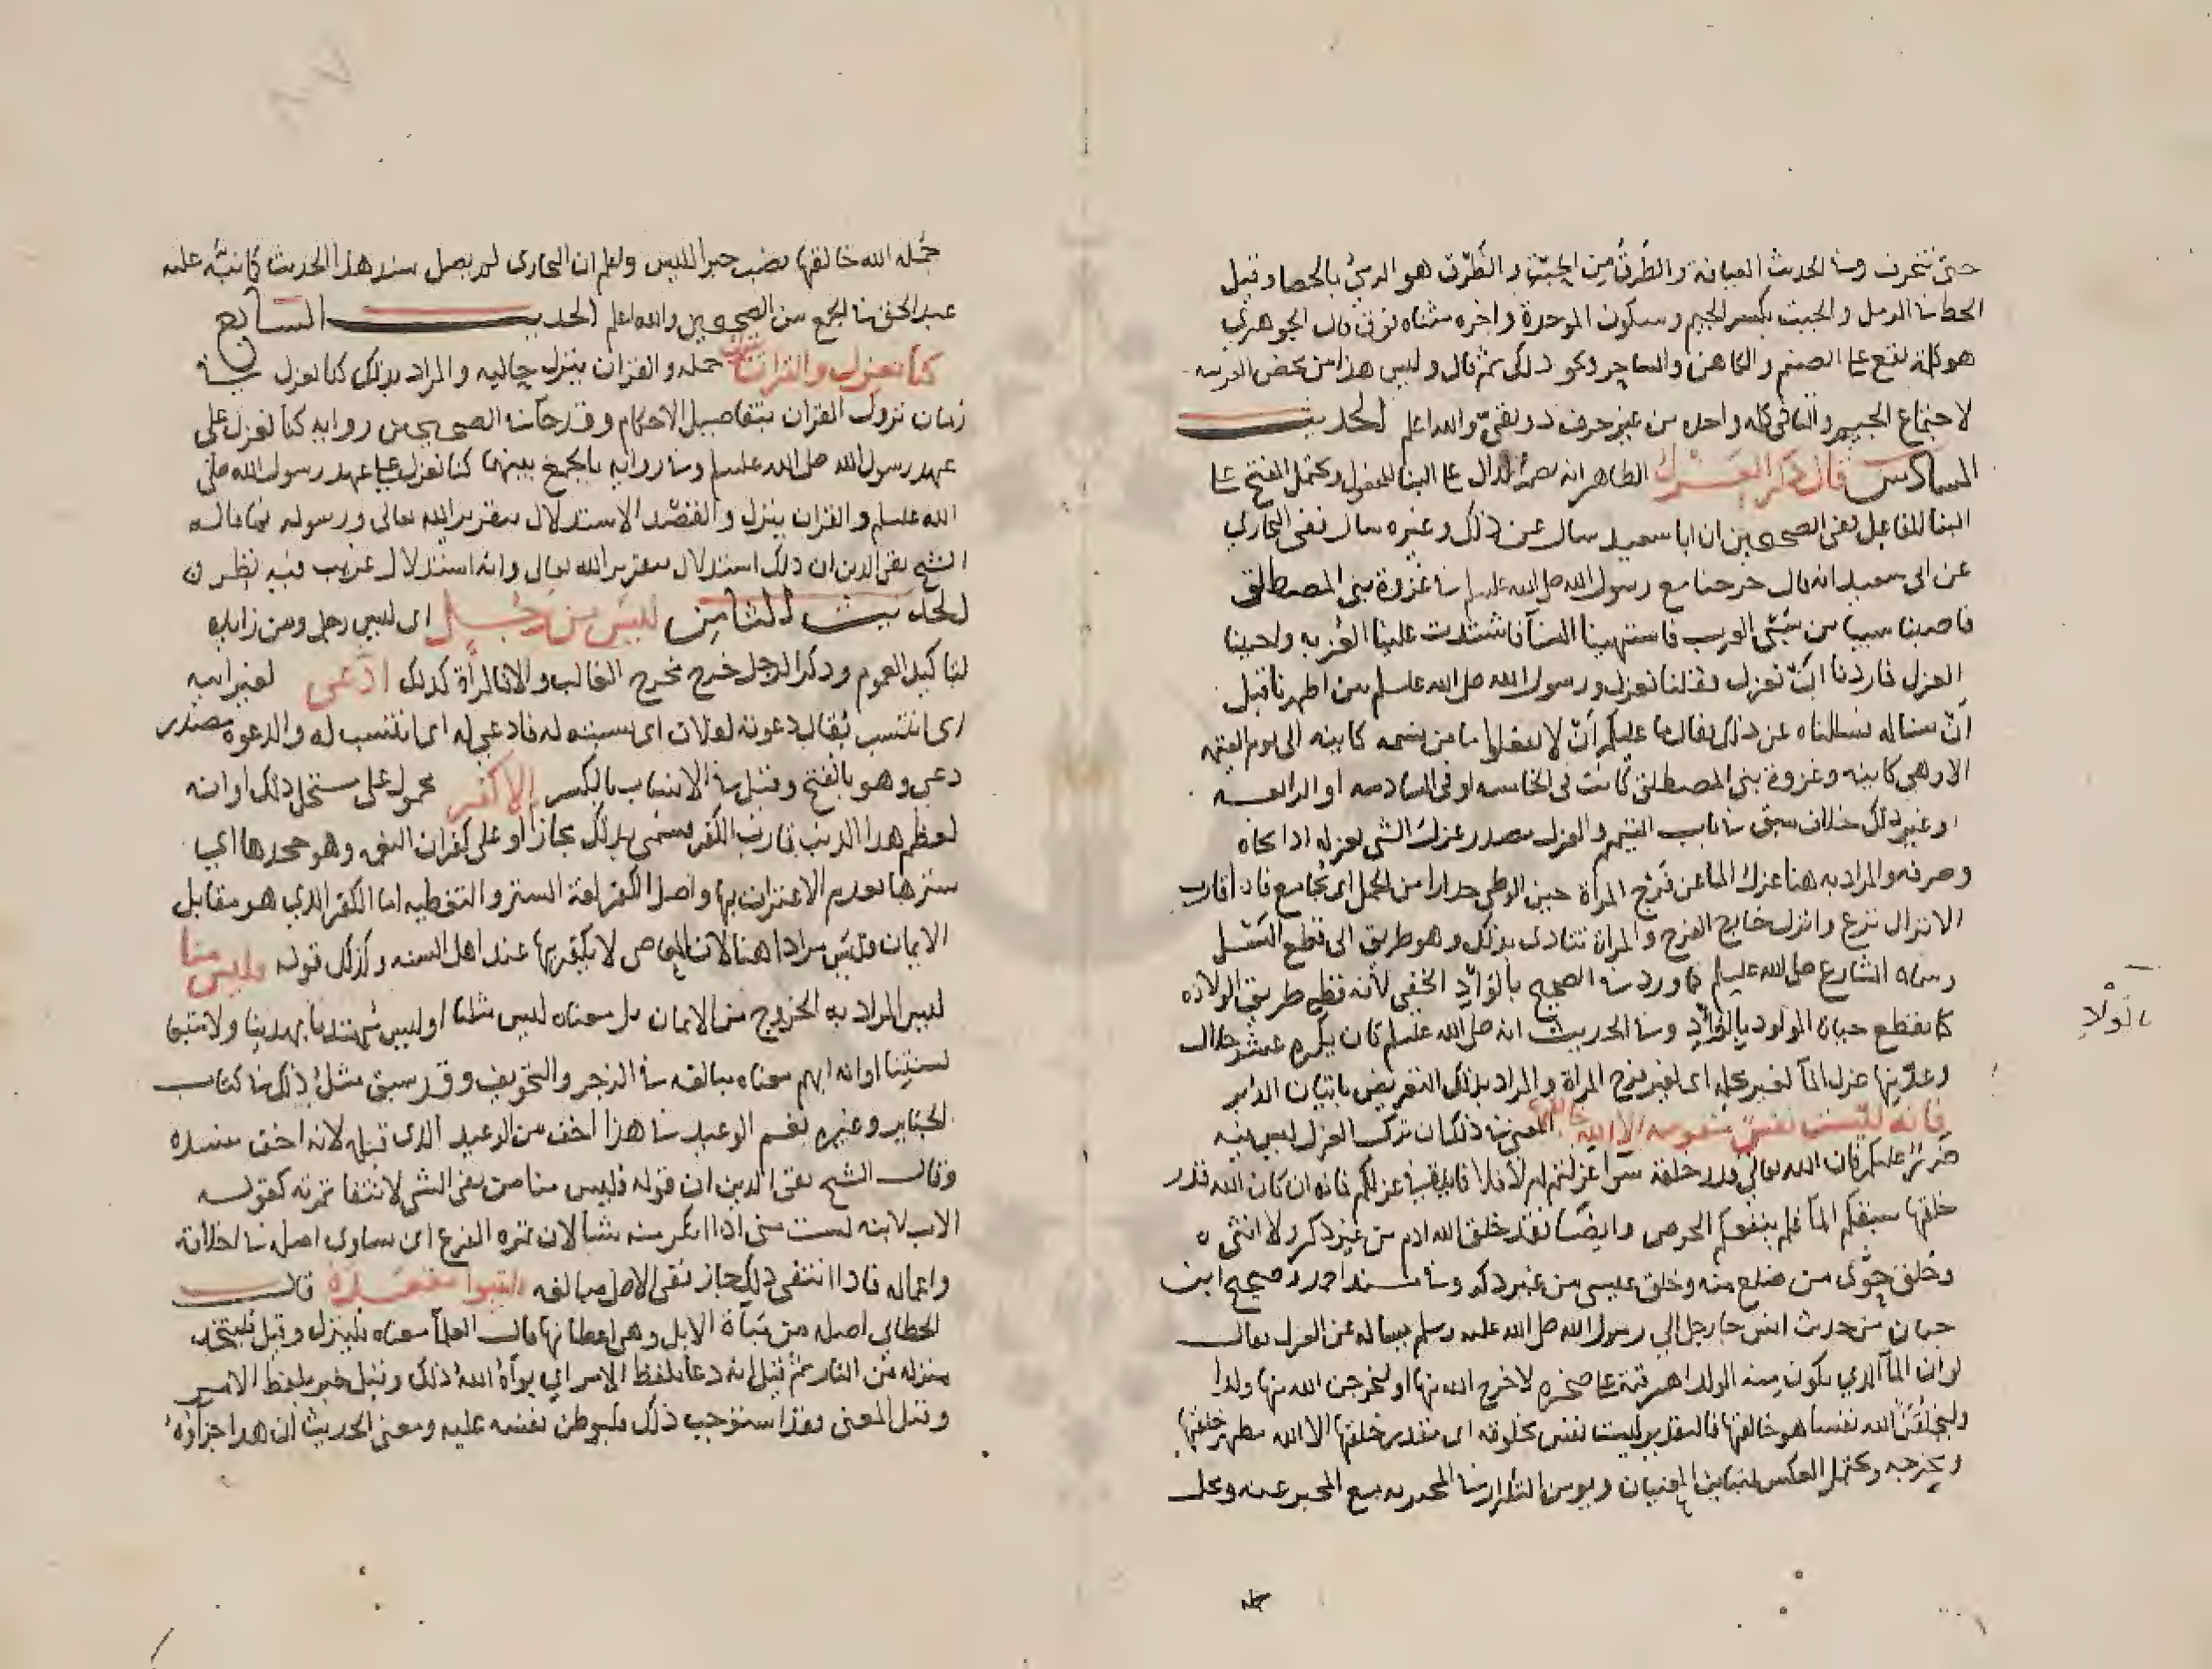 حتى تنحرف وفي الحديث العيافة والطرق من الجبت والطرق هو الرمي بالحصا وقيل
الخط في الرمل والجبت بكسر الجيم وسكون الموحدة واخره مثناه فوق قال الجوهري
هو كلمة تقع على الصنم والكاهن والساحر ونحو ذلك ثم قال وليس هذا من محض العربيه
لاجتماع الجيم والتا في كلمة واحده من غير حرف ذولقي والله اعلم الحديث
السادس قال ذكر العزل الظاهر انه بضم الذال على البنا للمفعول ويحتمل الفتح على
البنا للفاعل ففي الصحيحين ان ابا سعيد سال عن ذلك وغيره سال ففي البخاري
عن ابي سعيد انه قال خرجنا مع رسول الله صلى الله عليه وسلم في غزوة بني المصطلق
فاصبنا سبيا من سبي العرب فاشتهينا النسآ فاشتدت علينا العزبه واحببنا
العزل فاردنا ان نعزل فقلنا نعزل ورسول الله صلى الله عليه وسلم بين اظهرنا قبل
ان نساله فسالناه عن ذلك فقال ما عليكم ان لا تفعلوا ما من نسمه كاينه الى يوم القيمه
الا وهي كاينه وغزوة بني المصطلق كانت في الخامسه او في السادسه او الرابعه
او غير ذلك خلاف سبق في باب التيمم والعزل مصدر عزل الشي يعزله اذا نحاه
وصرفه والمراد به هنا عزل الما عن فرج المرأة حين الوطي حذارا من الحمل اي يجامع فاذا قارب
الانزال نزع وانزل خارج الفرج والمراة تتاذى بذلك وهو طريق الى قطع النسل
وسماه الشارع صلى الله عليه وسلم فيما ورد في الصحيح بالوأد الخفي لانه قطع طريق الولاده
كما يقطع حياة المولود بالوأد وفي الحديث انه صلى الله عليه وسلم كان يكره عشر خلال
وعد منها عزل المآ لغير محله اي لغير فرج المراة والمراد بذلك التعريض باتيان الدبر
فانه ليست نفس منفوسه الا الله خالقها المعنى في ذلك ان ترك العزل ليس فيه
ضرر عليكم فان الله تعالى قدر خلقه سوآ عزلتم ام لا فلا فايدة في عزلكم فانه ان كان الله قدر
خلقها سبقكم المآ فلم ينفعكم الحرص وايضًا فقد خلق الله ادم من غير ذكر ولا انثى
وخلق حوى من ضلع منه وخلق عيسى من غير ذكر وفي مسند احمد وصحيح ابن
حبان من حديث انس جا رجل الى رسول الله صلى الله عليه وسلم يساله عن العزل فقال
لو ان المآ الذي يكون منه الولد اهرقته على صخره لاخرج الله منها او ليخرجن الله منها ولدا
وليخلقن الله نفسا هو خالقها فالتقدير ليست نفس مخلوقه اي مقدر خلقها الا الله مظهر خلقها
ويخرجه ويحتمل العكس المعنيان
جمله
بالولاد
جُمله الله خالقها نصب خبرا لليس ولعلم ان البخاري لم يصل سند هذا الحديث كما نبه عليه
عبد الحق في الجمع بين الصحيحين والله اعلم الحديث السابع
كنا نعزل والقران ينزل جمله والقران ينزل حاليه والمراد بذلك كنا نعزل في
زمان نزول القران بتفاصيل الاحكام وقد جآ في الصحيحين روايه كنا نعزل على
عهد رسول الله صلى الله عليه وسلم وفي روايه بالجمع بينهما كنا نعزل على عهد رسول الله صلى
الله عليه وسلم والقران ينزل والقصد الاستدلال بتقرير الله تعالى ورسوله فما قاله
الشيخ تقي الدين ان ذلك استدلال بتقرير الله تعالى وانه استدلال غريب فيه نظر
الحديث الثامن ليس من رجل اي ليس رجل ومن زايده
لتاكيد العموم وذكر الرجل خرج مخرج الغالب والا فالمرأة كذلك ادعى لغير ابيه
اي انتسب يقال دعوته لفلان اي نسبته له فادعي له اي انتسب له والدعوة مصدر
دعي وهو بالفتح وقيل في الانتساب بالكسر الا كفر محمول على مستحل ذلك او انه
لعظم هذا الذنب قارب الكفر فسمي بذلك مجازا او على كفران النعمه وهو جحدها اي
سترها بعدم الاعتراف بها واصل الكفر لغة الستر والتغطيه اما الكفر الذي هو مقابل
الايمان فليس مرادا هنا لان المعاصي لا يكفر بها عند اهل السنه وكذلك قوله وليس منا
ليس المراد به الخروج من الايمان بل معناه ليس مثلنا او ليس مُهتديا بهدينا ولا متبعا
لسنتنا او انه ابهم معناه مبالغه في الزجر والتخويف وقد سبق مثل ذلك في كتاب
الجنايز وغيره نعم الوعيد في هذا اخف من الوعيد الذي قبله لانه اخف مفسده
وقال الشيخ تقي الدين ان قوله فليس منا من نفي الشي لانتفا ثمرته كقوله
الاب لابنه لست مني اذا انكر منه شيا لان ثمره الفرع ان يساوي اصله في اخلاقه
وافعاله فاذا انتفى ذلك جاز نفي الاصل مبالغه وليتبوا مقعده قال
الخطابي اصله من مبآة الابل وهي اعطانها قال العلمآ معناه فلينزل وقيل فليتخذ
منزله من النار ثم قيل انه دعا بلفظ الامر اي بوأه الله ذلك وقيل خبر بلفظ الامر
وقيل المعنى فقد استوجب ذلك فليوطن نفسه عليه ومعنى الحديث ان هذا جزآؤه